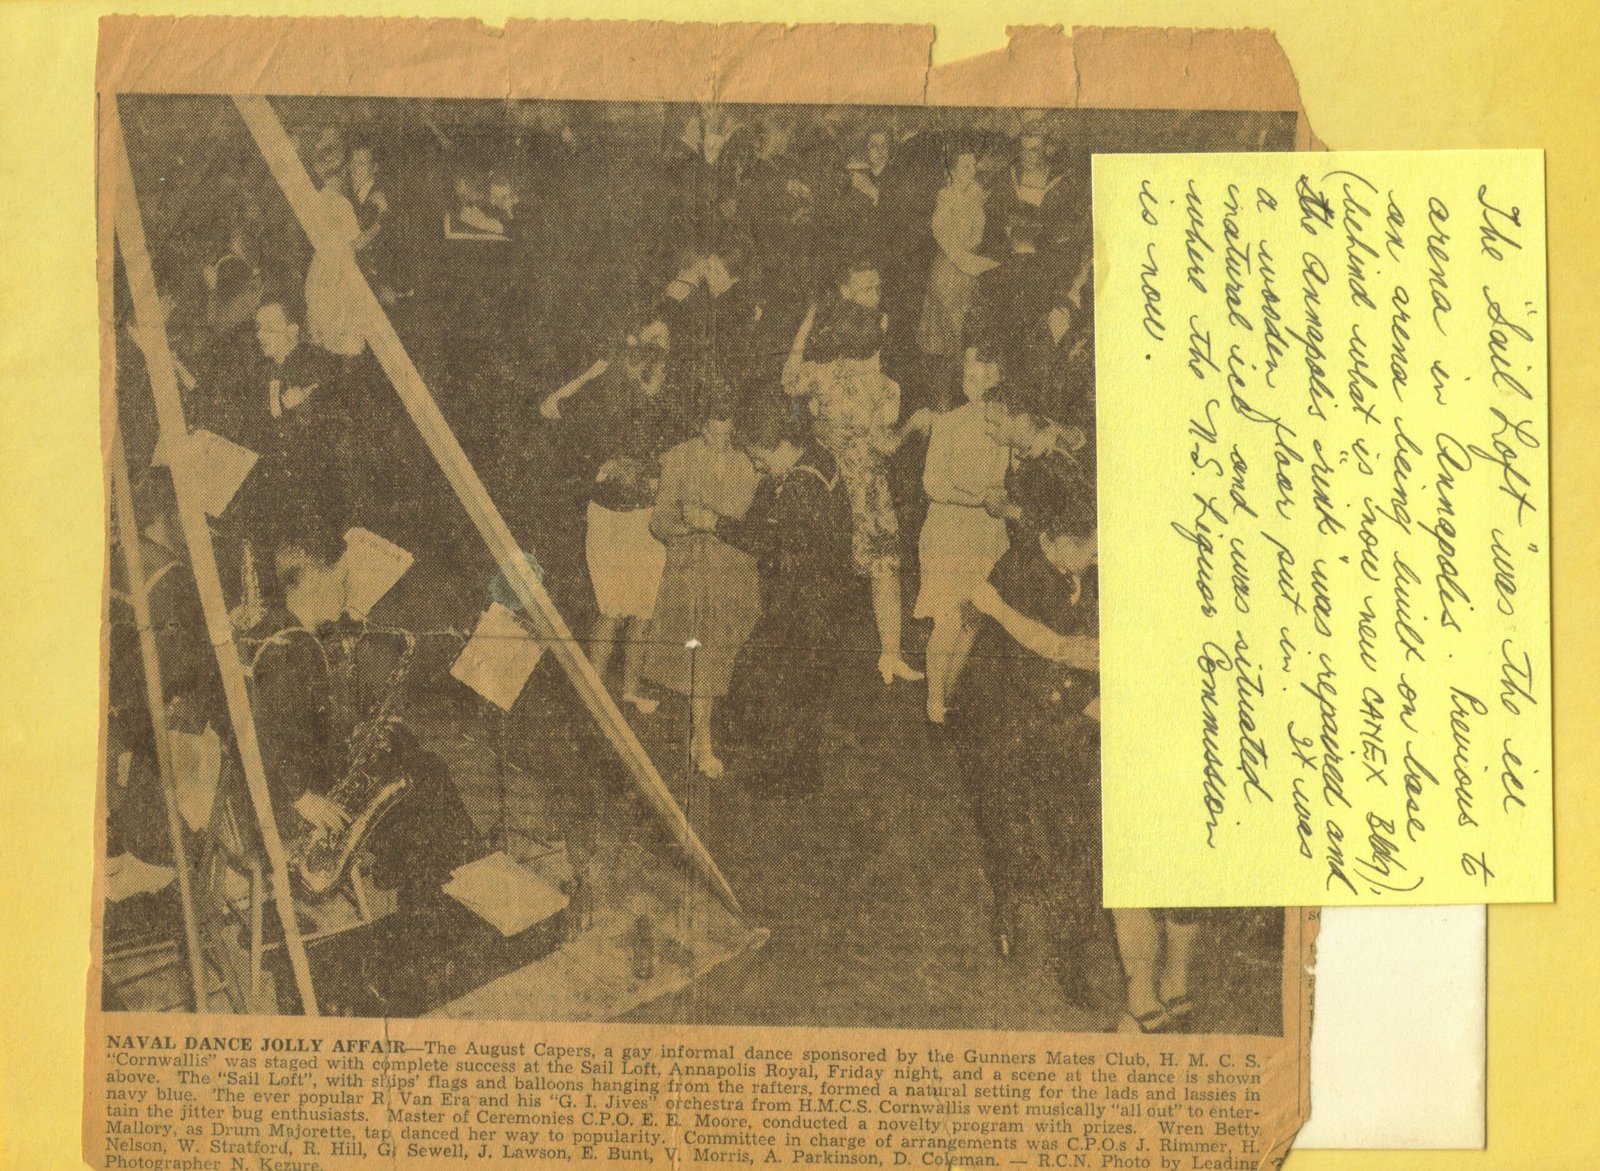 The "Sail Loft" was the ice
arena in Annapolis. Previous to
an arena being built on base
(behind what is now new CANEX Bldg),
the Annapolis "rink" was repaired and
a wooden floor put in. It was
natural ice and was situated
where the N.S. Liquor Commission
is now.
NAVAL DANCE JOLLY AFFAIR—The August Capers, a gay informal dance sponsored by the Gunners Mates Club, H. M. C. S.
"Cornwallis" was staged with complete success at the Sail Loft, Annapolis Royal, Friday night, and a scene at the dance is shown
above. The "Sail Loft", with ships' flags and balloons hanging from the rafters, formed a natural setting for the lads and lassies in
navy blue. The ever popular R. Van Era and his "G. I. Jives" orchestra from H.M.C.S. Cornwallis went musically "all out" to enter-
tain the jitter bug enthusiasts. Master of Ceremonies C.P.O. E. E. Moore, conducted a novelty program with prizes. Wren Betty
Mallory, as Drum Majorette, tap danced her way to popularity. Committee in charge of arrangements was C.P.O.s J. Rimmer, H.
Nelson, W. Stratford, R. Hill, G. Sewell, J. Lawson, E. Bunt, V. Morris, A. Parkinson, D. Coleman. — R.C.N. Photo by Leading
Photographer N. Kezure.